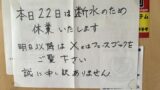 本日22日は断水のため
休業いたします
明日以降はXorフェースブックを
ご覧下さい
誠に申し訳ありません